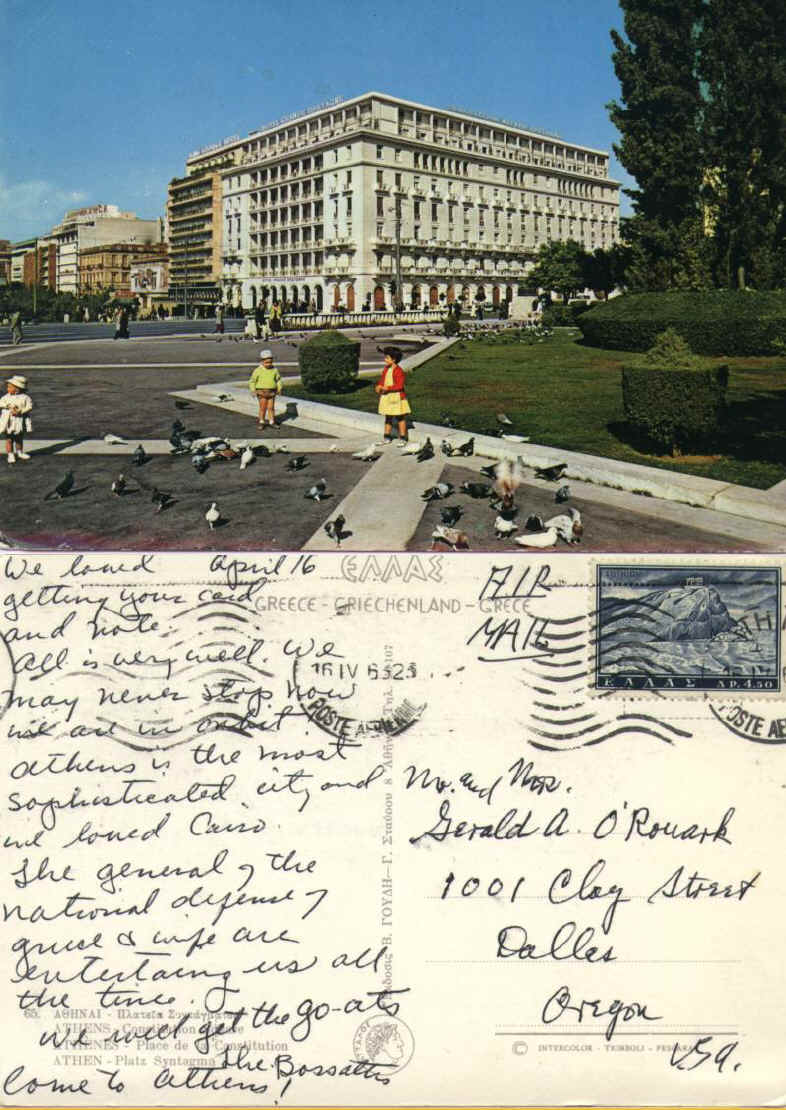 We loved April 16
getting your card
and note.
All is very well. We
may never stop now
we are in orbit!
Athens is the most
sophisticated city and
we loved Cairo.
The general of the
national defense of
greece & wife are
entertaing us all
the time.
We will get the go-ats
The Bossatts
Come to Athens!
65. ΑΘΗΝΑΙ - Πλατεῖα Συντάγματος
ATHENS - Constitution Square
ATHENES - Place de la Constitution
ATHEN - Platz Syntagma
ΕΛΛΑΣ
GREECE - GRIECHENLAND - GRECE
16 IV 63 23
POSTE AERIENNE
Ἔκδοσις Β. ΓΟΥΔΗ — Γ. Σταύρου 8 Ἀθῆναι Τηλ. 107
AIR
MAIL
ΕΛΛΑΣ ΔΡ. 4.50
POSTE AE
Mr. and Mrs.
Gerald A. O'Rouark
1001 Clay Street
Dallas
Oregon
USA.
© INTERCOLOR - TRIBOLI - PESCARA